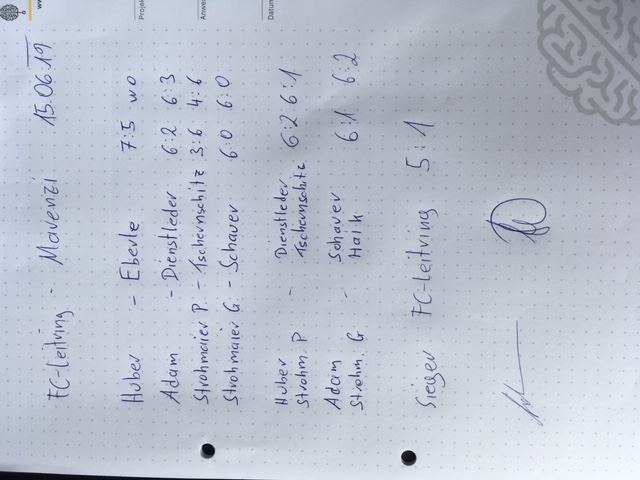 Projek
Anwe
Datum
FC-Leitring - Mavenzi 15.06.19
Huber - Eberle 7:5 wo
Adam - Dienstleder 6:2 6:3
Strohmaier P. - Tschernschitz 3:6 4:6
Strohmaier G. - Schaver 6:0 6:0
Huber Dienstleder
Strohm. P - Tschernschitz 6:2 6:1
Adam Schaver
Strohm. G - Haik 6:1 6:2
Sieger FC-Leitring 5:1